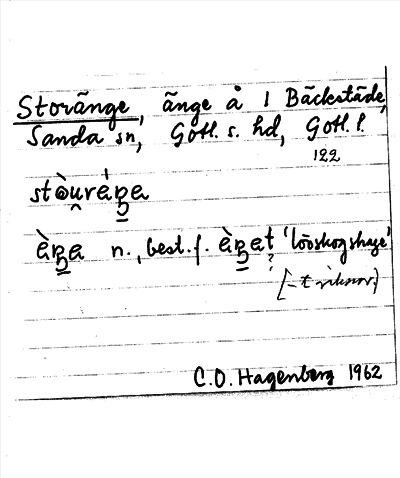 Storänge, änge å 1 Bäckstäde,
Sanda sn, Gotl. s. hd, Gotl. l.
122
stòu̯ráŋa
àŋa n., best. f. àŋat 'lövskogshage'
?
C.O. Hagenberg 1962